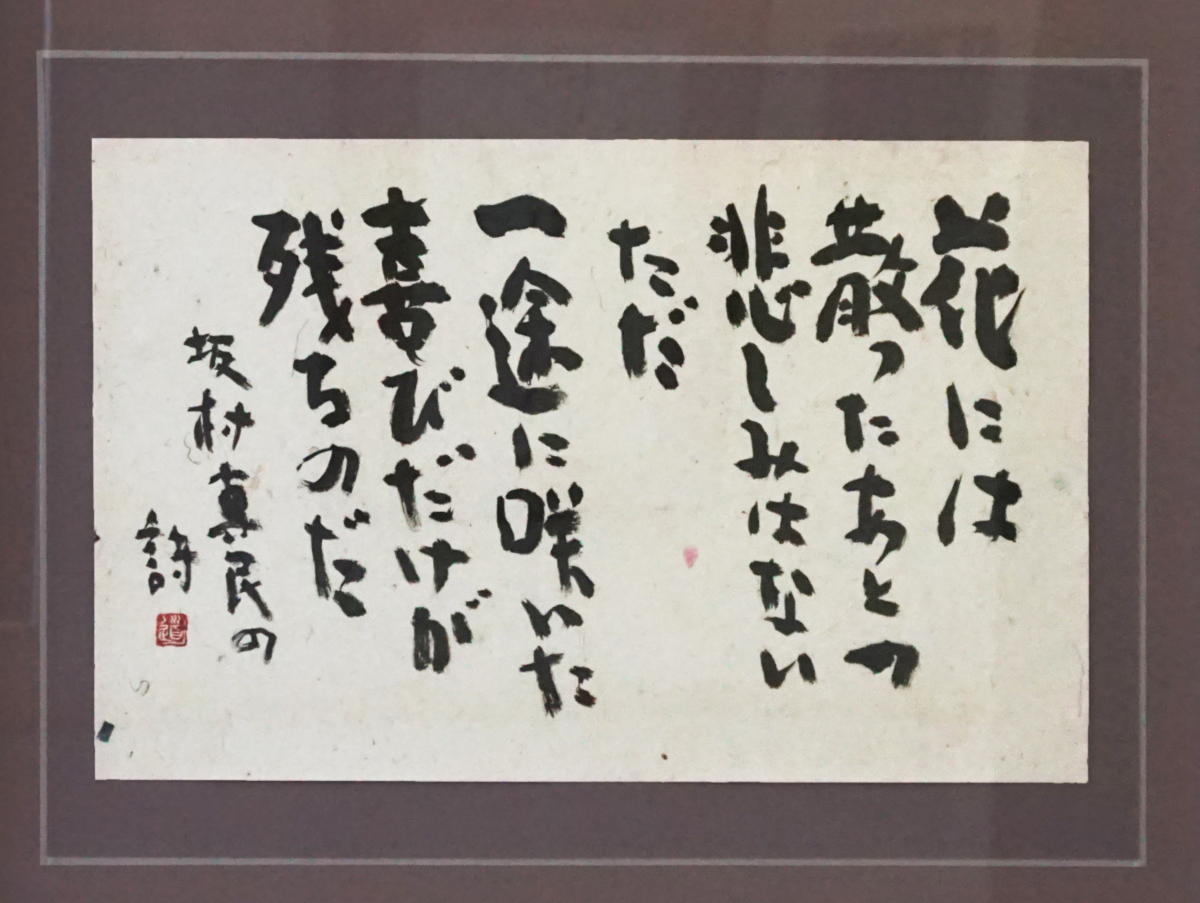 花には
散ったあとの
悲しみはない
ただ
一途に咲いた
喜びだけが
残るのだ
坂村真民の
詩
道